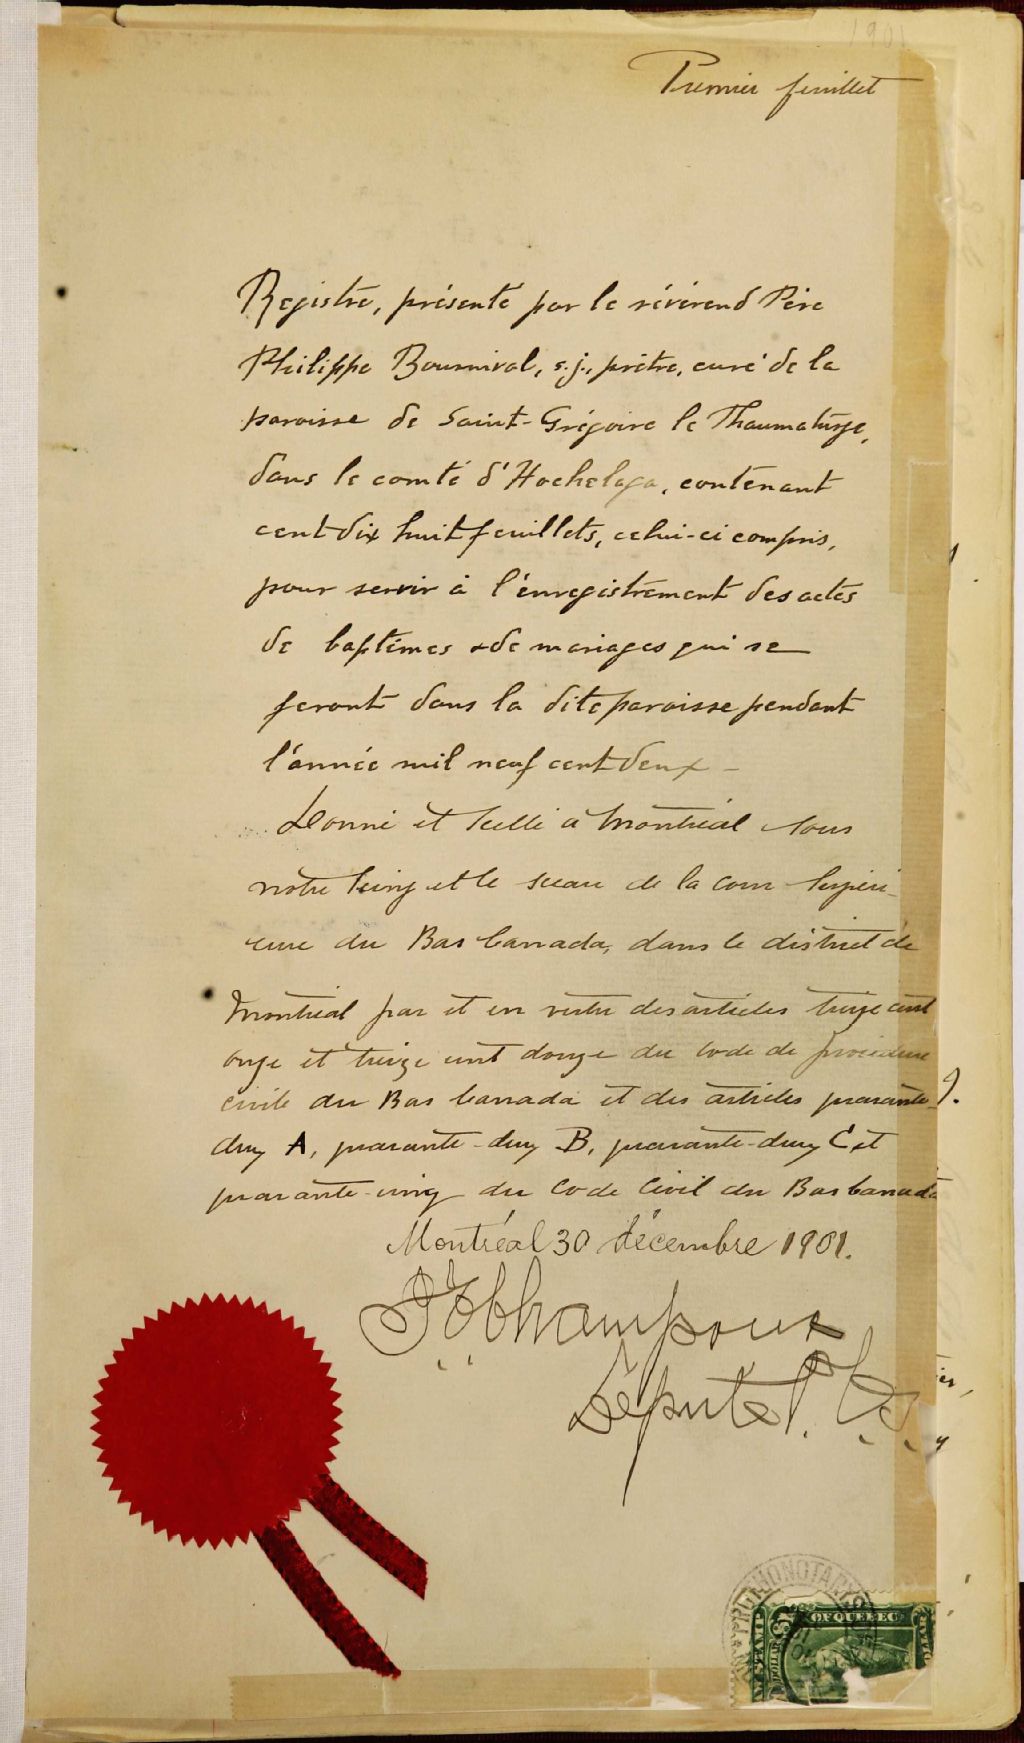 1901
Premier feuillet
Registre, présenté par le révérend Père
Philippe Bournival, s.j., prêtre, curé de la
paroisse de Saint-Grégoire le Thaumaturge,
dans le comté d'Hochelaga, contenant
cent dix huit feuillets, celui-ci compris,
pour servir à l'enregistrement des actes
de baptêmes & de mariages qui se
feront dans la dite paroisse pendant
l'année mil neuf cent deux -
Donné et scellé à Montréal sous
notre seing et le sceau de la cour supéri-
eure du Bas Canada, dans le district de
Montréal par et en vertu des articles treize cent
onze et treize cent douze du code de procédure
civile du Bas Canada et des articles quarante-
deux A, quarante-deux B, quarante-deux C et
quarante-cinq du Code Civil du Bas Canada
Montréal 30 décembre 1901.
Champoux
Député P. C. S.
PROTHONOTAIRE
OF QUEBEC
STAMP
DOLLAR